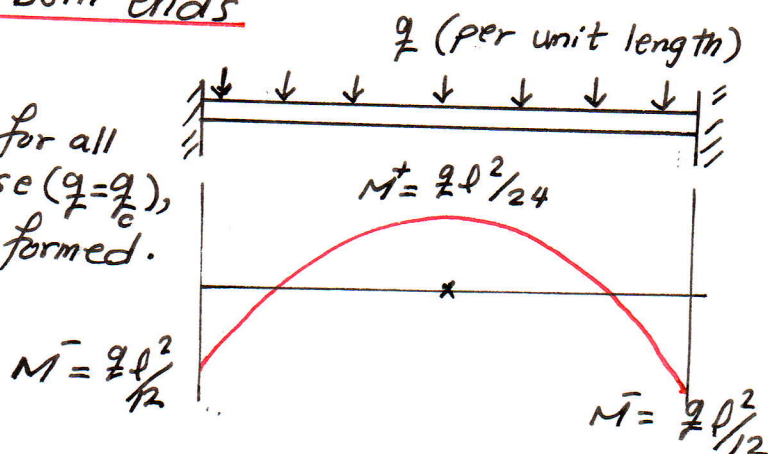 both ends
q (per unit length)
for all
se (q=q_c),
formed.
M⁺= ql²/24
M⁻= ql²/12
M⁻= ql²/12